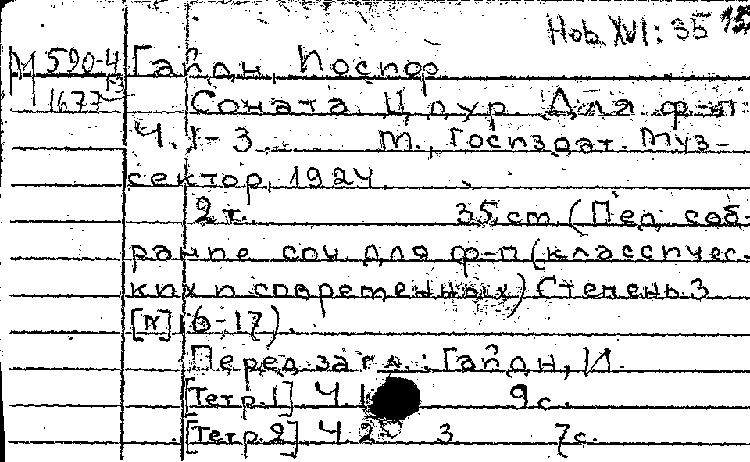 Hob XVI: 35
М 590-4 Гайдн, Йосиф
1677 Соната Ц дур. Для ф-п.
Ч. 1-3. М., Госиздат. Муз-
сектор, 1924.
2 т. 35 cm. (Пед. соб-
рание соч для ф-п (классичес-
ких и современных) Степень 3
[N] 16-17).
Перед загл.: Гайдн, И.
[Тетр. 1] Ч. 1 9 с.
[Тетр. 2] Ч. 2 3 7 с.